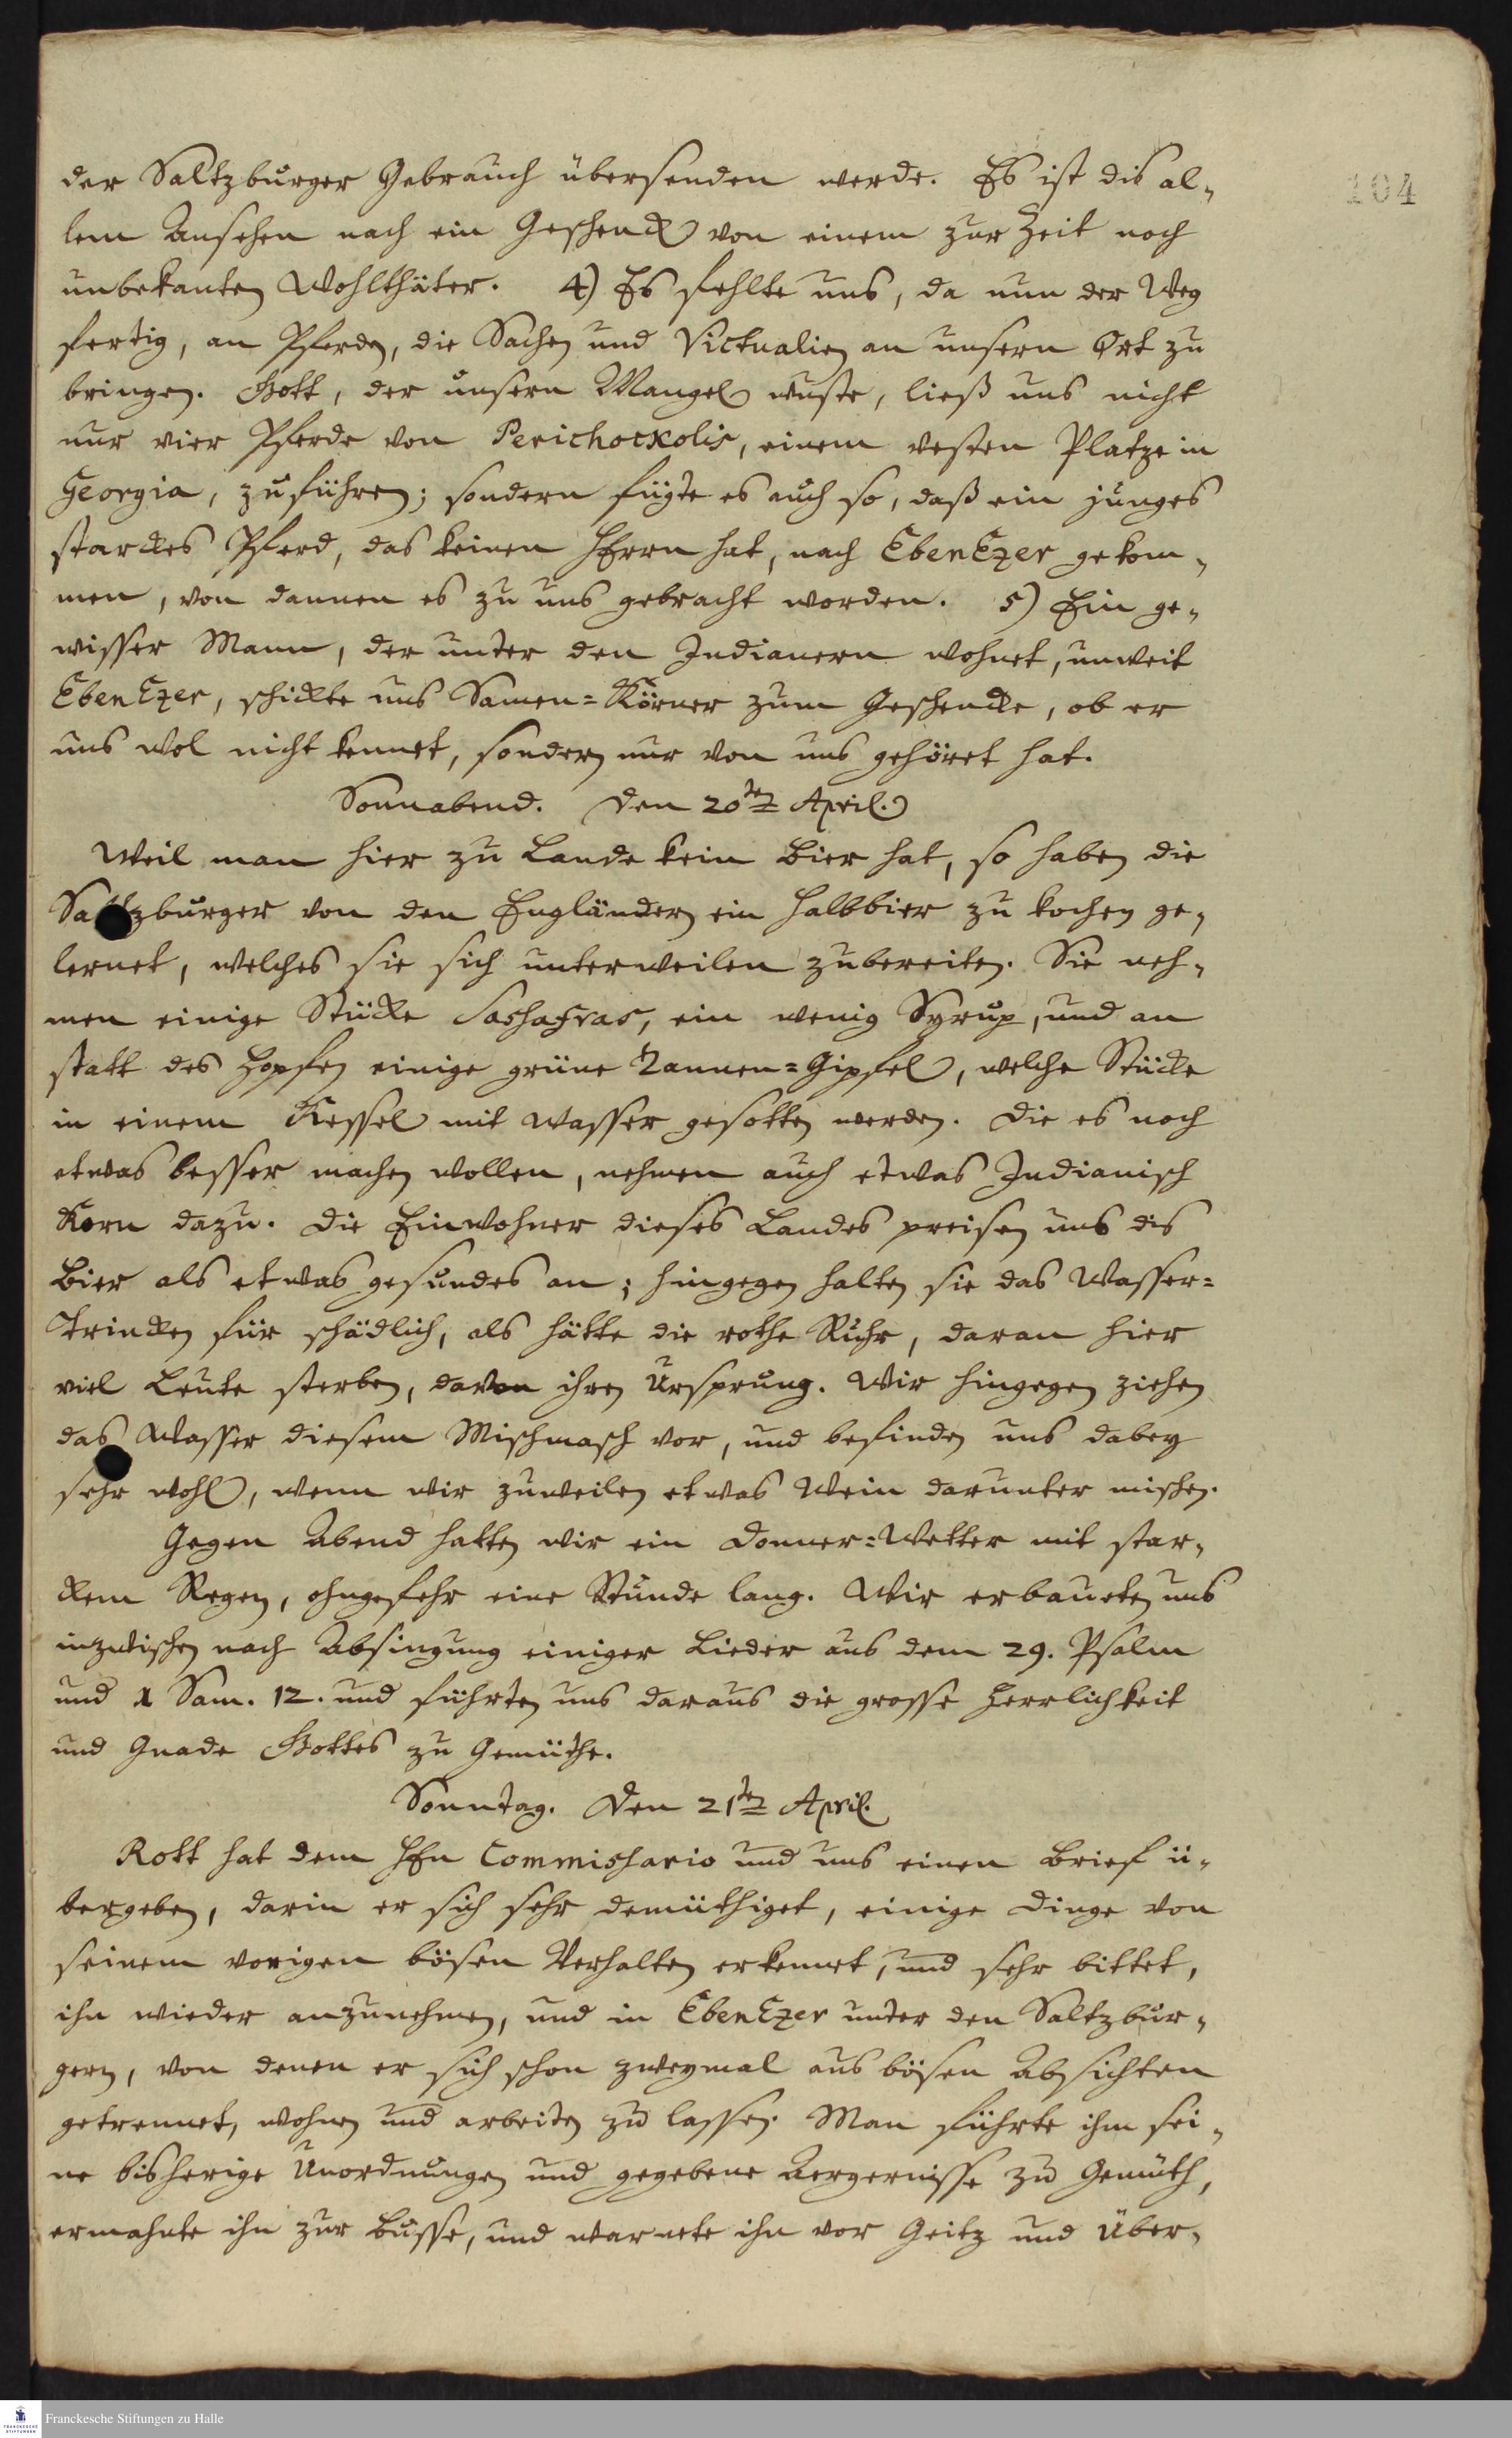 104
der Saltzburger Gebrauch übersenden werde. Es ist dis al-
lem Ansehen nach ein Geschenck von einem zur Zeit noch
unbekanten Wohlthäter. 4) Es fehlte uns, da nun der Weg
fertig, an Pferden, die Sachen und Victualien an unsern Ort zu
bringen. Gott, der unsern Mangel wuste, ließ uns nicht
nur vier Pferde von Perichockolis, einem vesten Platze in
Georgia, zuführen; sondern fügte es auch so, daß ein junges
starckes Pferd, das keinen HErrn hat, nach EbenEzer gekom-
men, von dannen es zu uns gebracht worden. 5) Ein ge-
wisser Mann, der unter den Indianern wohnet, unweit
EbenEzer, schickte uns Samen=Körner zum Geschencke, ob er
uns wol nicht kennet, sondern nur von uns gehöret hat.
Sonnabend. Den 20ten April.
Weil man hier zu Lande kein Bier hat, so haben die
Saltzburger von den Engländern ein Halbbier zu kochen ge-
lernet, welches sie sich unterweilen zubereiten. Sie neh-
men einige Stücke Sassafras, ein wenig Syrup, und an
statt des Hopfen einige grüne Tannen=Gipfel, welche Stücke
in einem Kessel mit Wasser gesotten werden. Die es noch
etwas besser machen wollen, nehmen auch etwas Indianisch
Korn dazu. Die Einwohner dieses Landes preisen uns dis
Bier als etwas gesundes an; hingegen halten sie das Wasser=
Trincken für schädlich, als hätte die rothe Ruhr, daran hier
viel Leute sterben, davon ihren Ursprung. Wir hingegen ziehen
das Wasser diesem Mischmasch vor, und befinden uns dabey
sehr wohl, wenn wir zuweilen etwas Wein darunter mischen.
Gegen Abend hatten wir ein Donner=Wetter mit star-
ckem Regen, ohngefehr eine Stunde lang. Wir erbaueten uns
inzwischen nach Absingung einiger Lieder aus dem 29. Psalm
und 1 Sam. 12. und führten uns daraus die grosse Herrlichkeit
und Gnade Gottes zu Gemüthe.
Sonntag. Den 21ten April.
Rott hat dem HEn Commissario und uns einen Brief ü-
bergeben, darin er sich sehr demüthiget, einige Dinge von
seinem vorigen bösen Verhalten erkennet, und sehr bittet,
ihn wieder anzunehmen, und in EbenEzer unter den Saltzbur-
gern, von denen er sich schon zweymal aus bösen Absichten
getrennet, wohnen und arbeiten zu lassen. Man führte ihm sei-
ne bisherige Unordnungen und gegebene Aergernisse zu Gemüth,
ermahnte ihn zur Busse, und warnete ihn vor Geitz und Über-
FRANCKESCHE STIFTUNGEN
Franckesche Stiftungen zu Halle